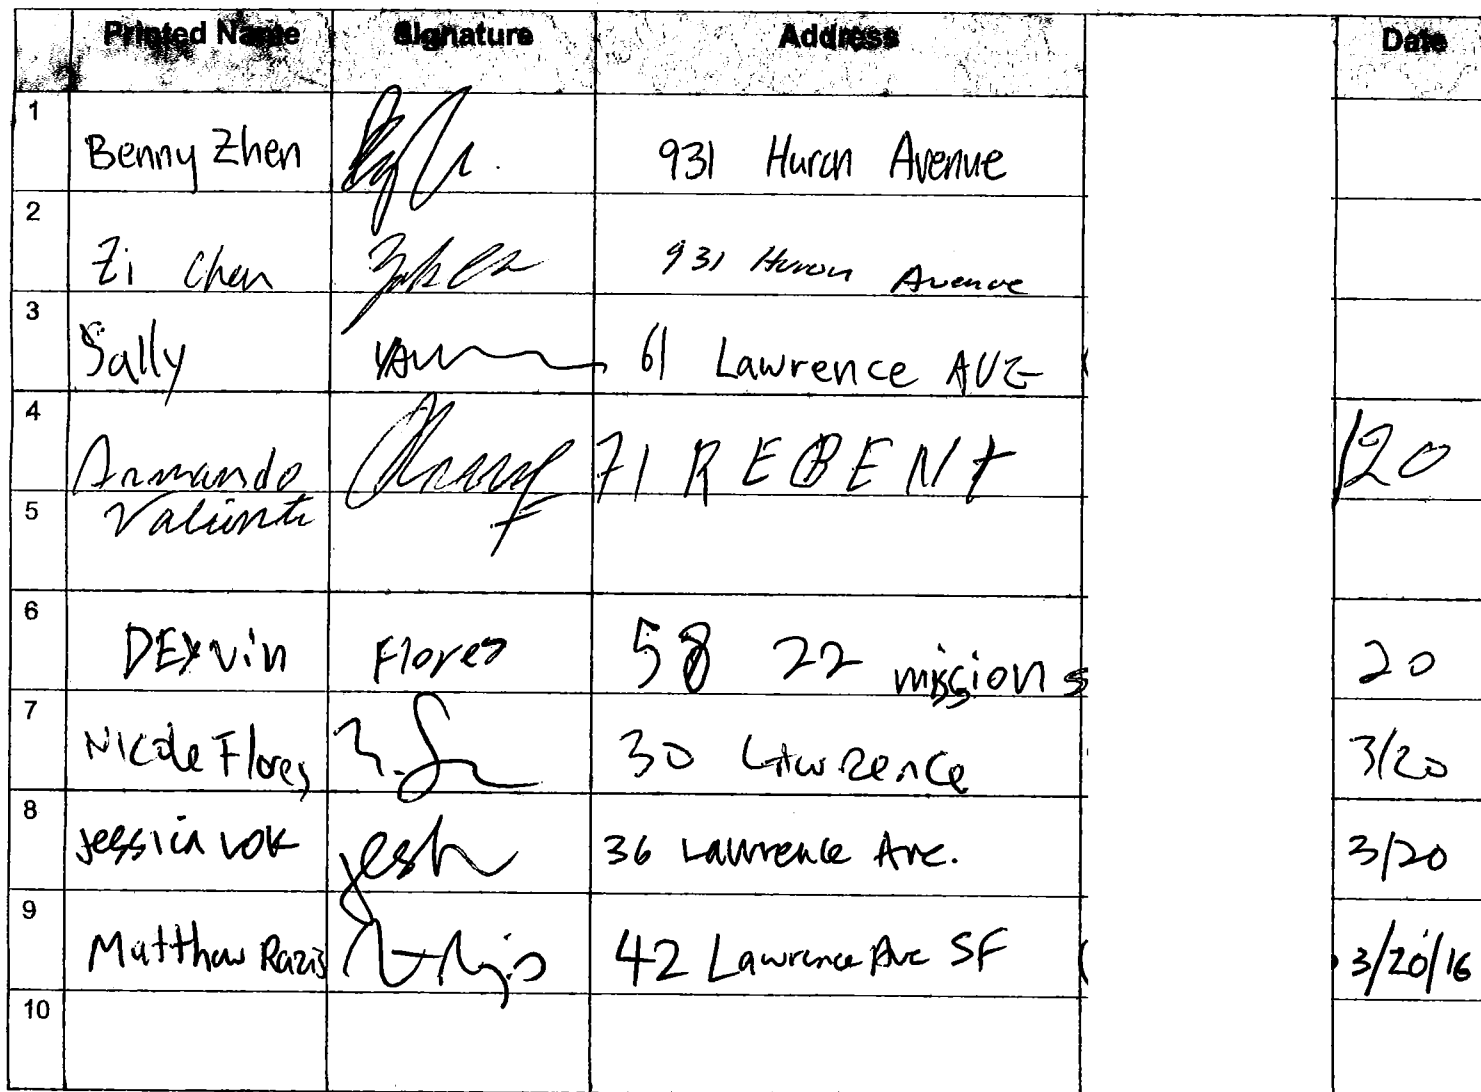 Printed Name Signature Address Date
1 Benny Zhen 931 Huron Avenue
2 Zi Chen 931 Huron Avenue
3 Sally 61 Lawrence AVE
4 Armando 71 REGENT /20
5 Valiente
6 DEYVin Flores 58 22 mission s 20
7 Nicole Flores 30 Lawrence 3/20
8 Jessica Lok 36 Lawrence Ave. 3/20
9 Matthew Razis 42 Lawrence Ave SF 3/20/16
10